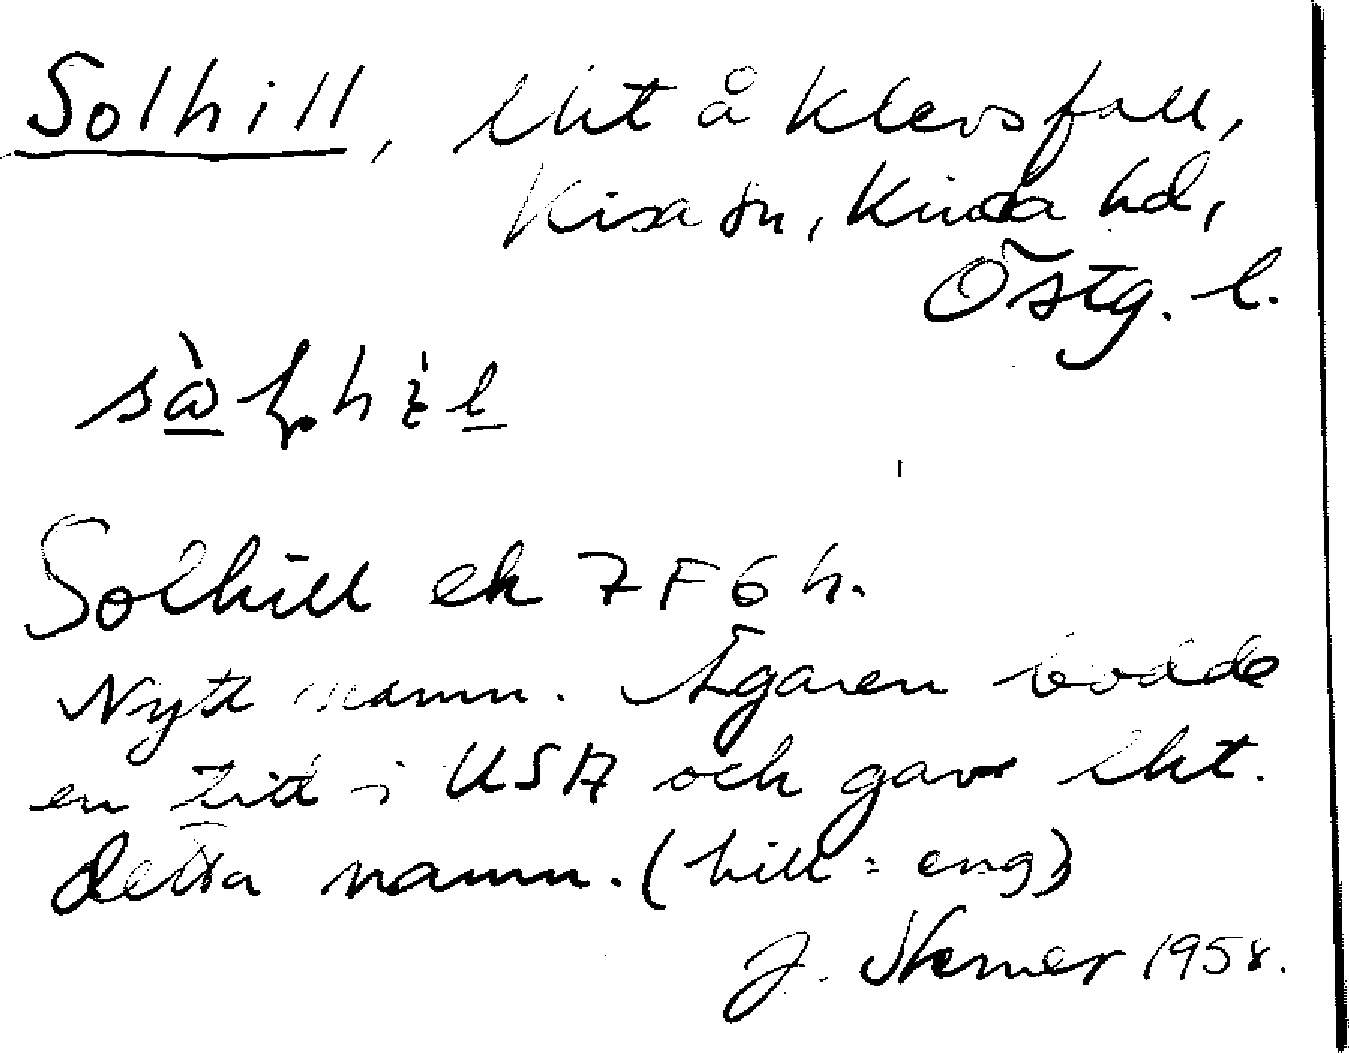 Solhill, lht å Klevsfall,
Kisa sn, Kinda hd,
Östg. l.
Solhill ek 7 F 6 h.
Nytt namn. Ägaren bodde
en tid i USA och gav lht.
detta namn. (hill = eng)
J. 1958.